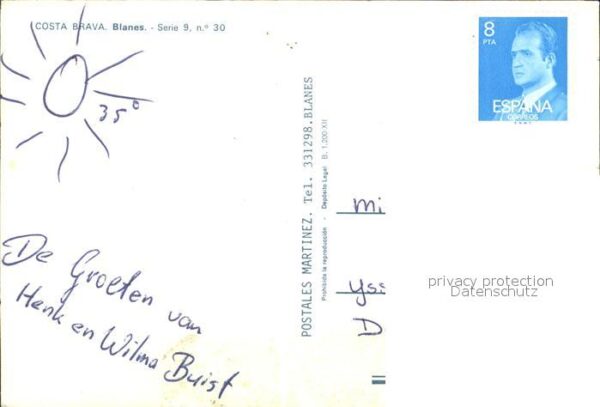 COSTA BRAVA. Blanes. - Serie 9, n.º 30
35°
De Groeten van
Henk en Wilma Buist
POSTALES MARTINEZ. Tel. 331298.BLANES
Prohibida la reproducción - Depósito Legal B. 1.200-XII
8
PTA
ESPAÑA
CORREOS
Mi
Yss
D
privacy protection
Datenschutz